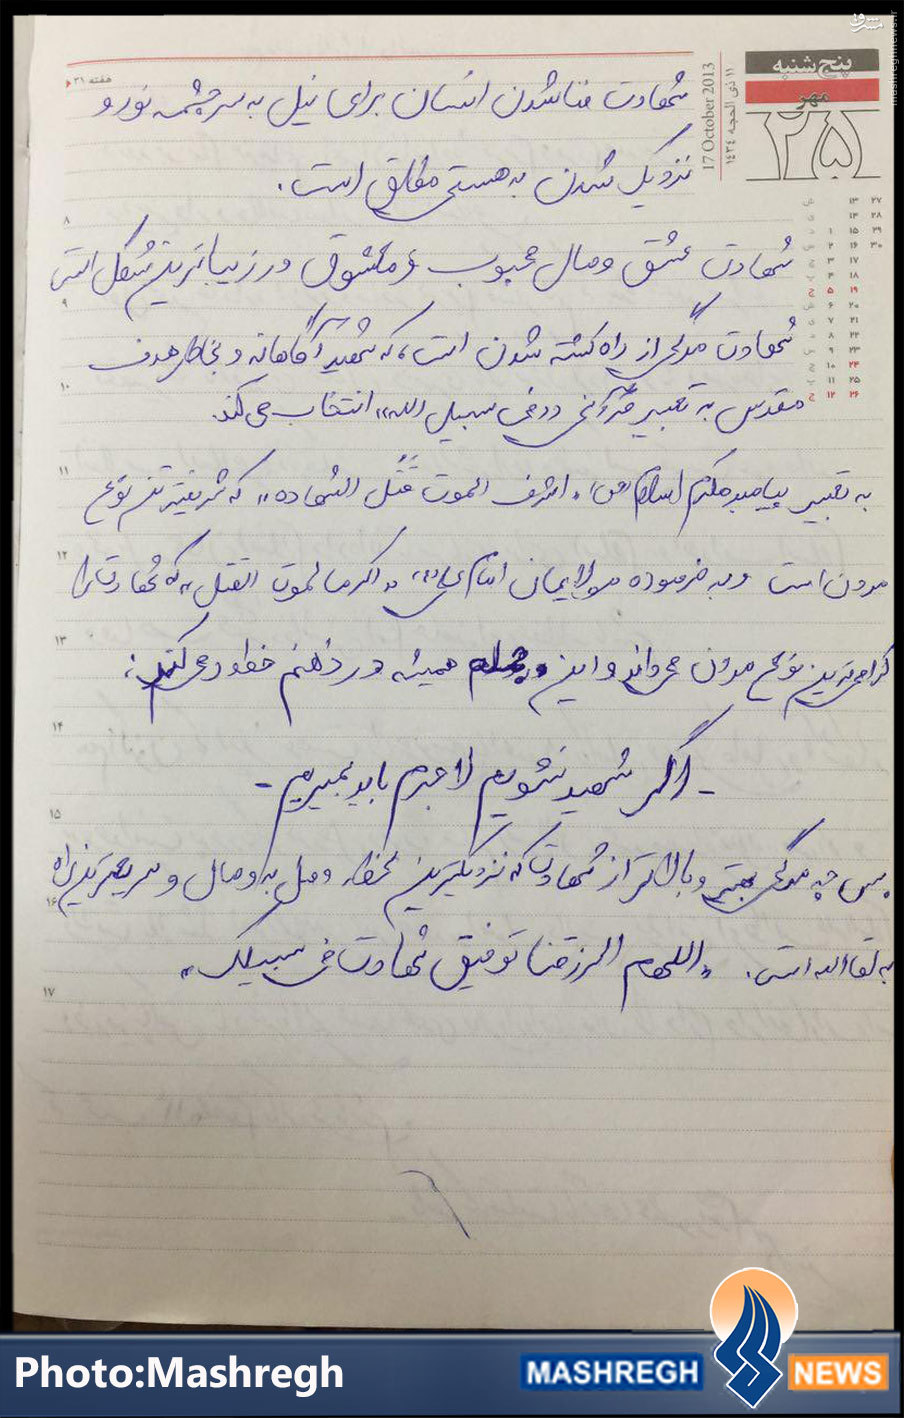 پنج شنبه
مهر
۲۵
17 October 2013
۱۱ ذی الحجه ۱۴۳۴
هفته ۳۱
شهادت فنا شدن انسان برای نیل به سرچشمه نور و
نزدیک شدن به هستی مطلق است.
شهادت عشق وصال محبوب و معشوق در زیباترین شکل است
شهادت مرگی از راه کشته شدن است، که شهید آگاهانه و بخاطر هدف
مقدس به تعبیر قرآنی «فی سبیل الله» انتخاب می کند.
به تعبیر پیامبر مکرم اسلام (ص) «اشرف الموت قتل الشهاده» که شریفترین نوع
مردن است و به فرموده مولای ایمان امام علی (ع) «اکرم الموت القتل» که شهادت را
گرامی ترین نوع مردن می داند و این جمله همیشه در ذهنم خطور می کند:
- اگر شهید نشویم لاجرم باید بمیریم -
پس چه مرگی بهتر و بالاتر از شهادت که نزدیکترین لحظه وصل به وصال و سریعترین راه
به لقاالله است. «اللهم الرزقنا توفیق شهادت فی سبیلک»
۸
۹
۱۰
۱۱
۱۲
۱۳
۱۴
۱۵
۱۶
۱۷
مشرق
mashreghnews.ir
Photo:Mashregh
MASHREGH NEWS